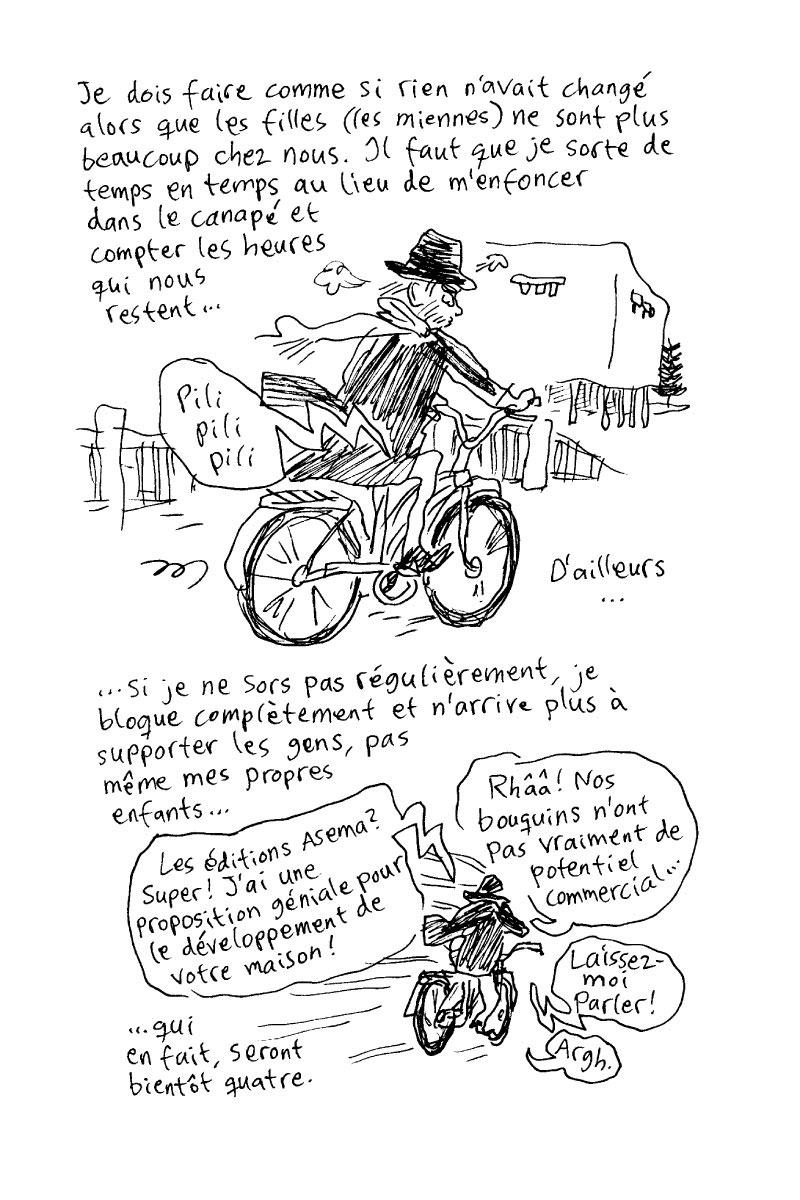 Je dois faire comme si rien n'avait changé
alors que les filles (les miennes) ne sont plus
beaucoup chez nous. Il faut que je sorte de
temps en temps au lieu de m'enfoncer
dans le canapé et
compter les heures
qui nous
restent...
Pili
pili
pili
D'ailleurs
...
...Si je ne sors pas régulièrement, je
bloque complètement et n'arrive plus à
supporter les gens, pas
même mes propres
enfants...
Les éditions Asema?
Super! J'ai une
proposition géniale pour
le développement de
votre maison!
Rhââ! Nos
bouquins n'ont
pas vraiment de
potentiel
commercial...
Laissez-
moi
Parler!
Argh.
...qui
en fait, seront
bientôt quatre.